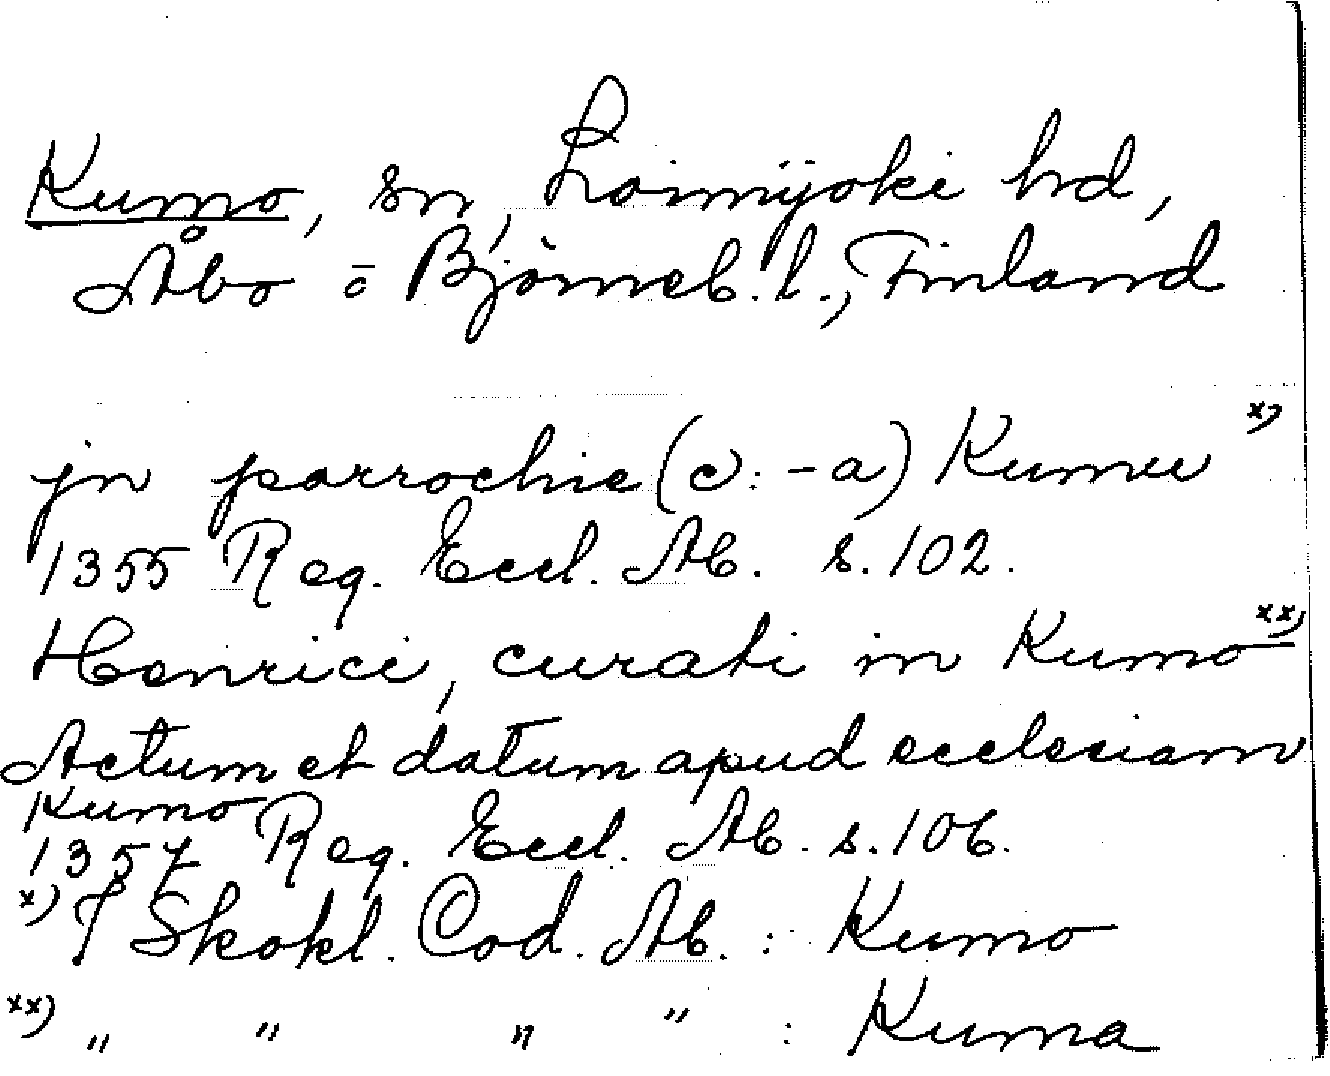 Kumo, sn, Loimijoki hd,
Åbo o Björneb. l., Finland
jn parrochie (c: -a) Kumu x)
1355 Reg. Eccl. Ab. s. 102.
Henrici, curati in Kumo xx)
Actum et datum apud ecclesiam
Kumo
1357 Reg. Eccl. Ab. s. 106.
x) I Skokl. Cod. Ab. : Kumo
xx) " " " " : Kuma